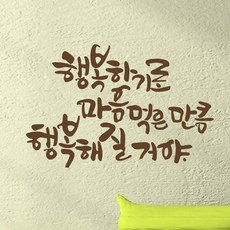 행복하기로
마음먹은 만큼
행복해질 거야.